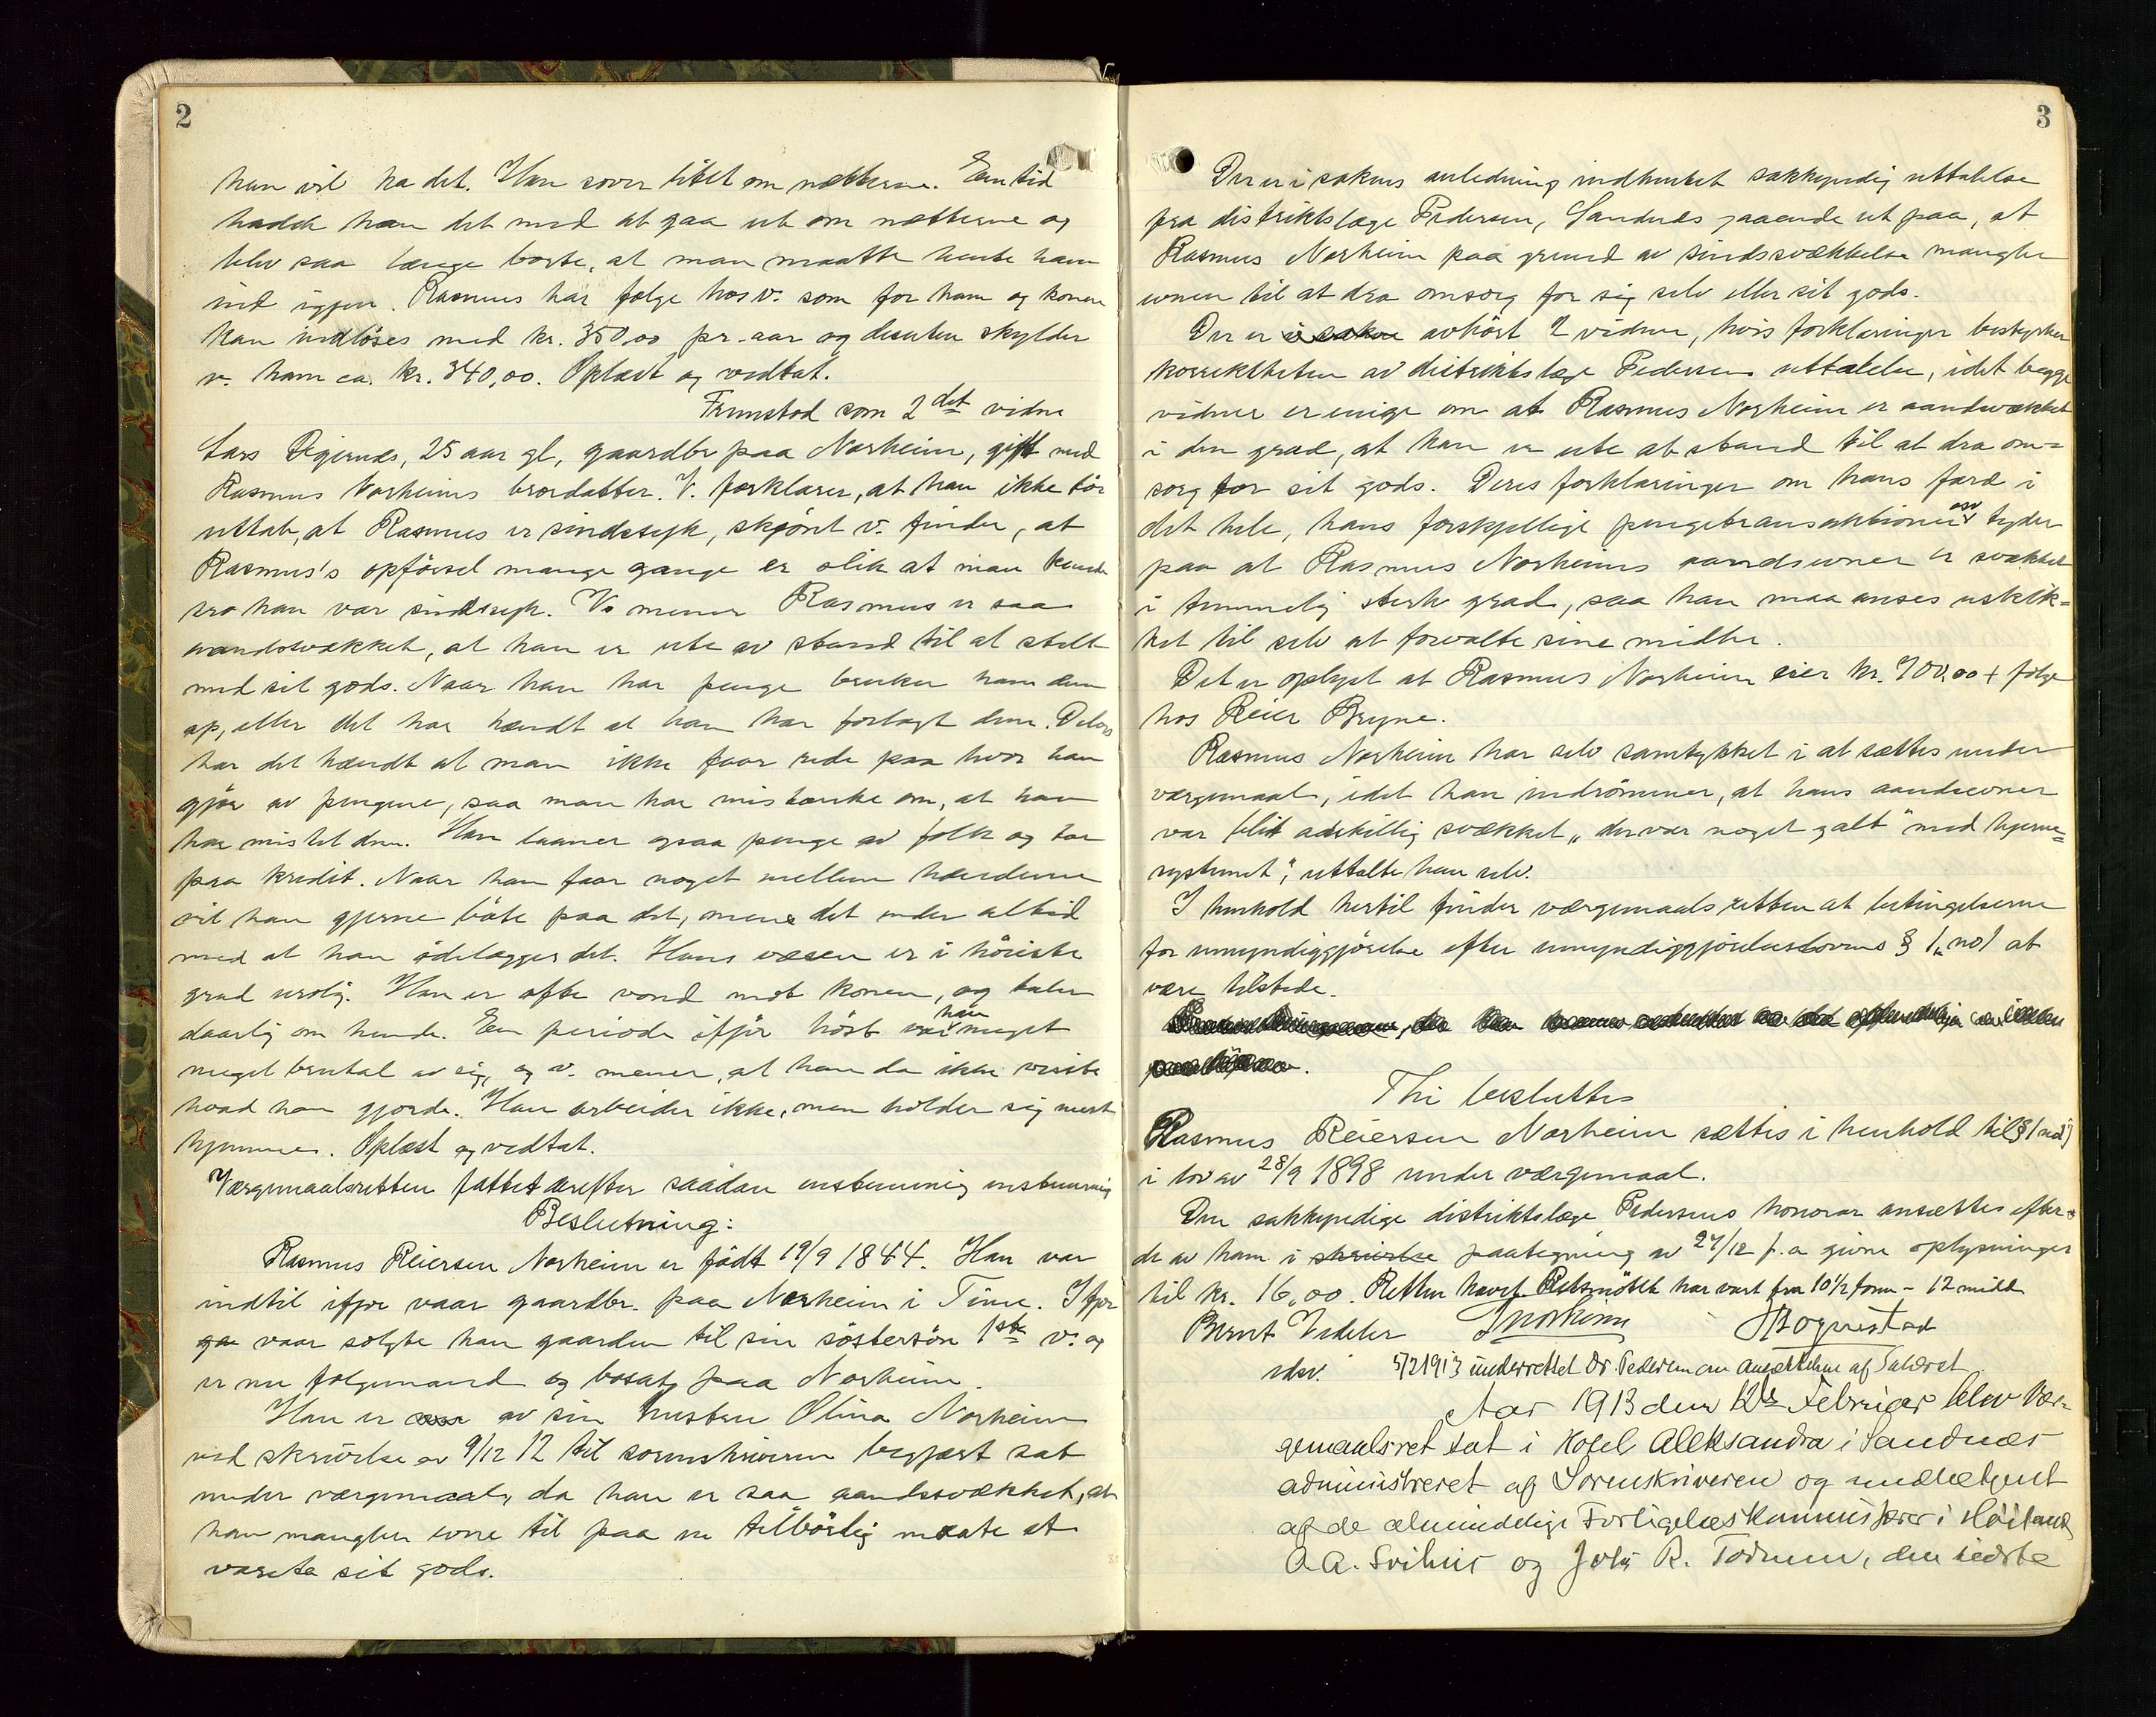 2
han vil ha det. Han sover litet om nætterne. Een tid
hadde han det med at gaa ut om nætterne og
blev saa længe borte, at man maatte hente ham
ind igjen. Rasmus har følge hos v. som for ham og konen
kan indlöses med kr. 350,00 pr. aar og desuten skylder
v. ham ca. kr. 340,00. Oplæst og vedtat.
Fremstod som 2det vidne
Lars Digernes, 25 aar gl, gaardbr paa Norheim, gift med
Rasmus Norheims brordatter. V. forklarer, at han ikke tör
uttale, at Rasmus er sindssyk, skjönt v. finder, at
Rasmus's opförsel mange gange er slik at man kunde
tro han var sindssyk. V. mener Rasmus er saa
aandssvækket, at han er ute av stand til at stelle
med sit gods. Naar han har penge bruker han dem
op, eller det har hændt at han har forlagt dem. Delvis
har det hændt at man ikke faar rede paa hvor han
gjør av pengene, saa man har mistanke om, at han
har mistet dem. Han laaner ogsaa penge av folk og tar
paa kredit. Naar han faar noget mellem hænderne
vil han gjerne böte paa det, mens det ender altid
med at han ödelægger det. Hans væsen er i höieste
grad urolig. Han er ofte vond mot konen, og taler
daarlig om hende. Een periode ifjor höst var han meget
meget brutal av sig, og v. mener, at han da ikke visste
hvad han gjorde. Han arbeider ikke, men holder sig mest
hjemme. Oplæst og vedtat.
Værgemaalsretten fattet derefter saadan enstemmig enstemmig
Beslutning:
Rasmus Reiersen Norheim er födt 19/9 1844. Han var
indtil ifjor vaar gaardbr. paa Norheim i Time. Ifjor
vaar solgte han gaarden til sin söstersön 1ste v. og
er nu følgemand og bosat paa Norheim.
Han er av sin hustru Olina Norheim
ved skrivelse av 9/12 12 til sorenskriveren begjært sat
under værgemaal, da han er saa aandssvækket, at
han mangler evne til paa en tilbörlig maate at
vareta sit gods.
3
Der er i sakens anledning indhentet sakkyndig uttalelse
fra distriktslæge Pedersen, Sandnes gaaende ut paa, at
Rasmus Norheim paa grund av sindssvækkelse mangler
evnen til at dra omsorg for sig selv eller sit gods.
Der er i saken avhört 2 vidner, hvis forklaringer bestyrker
korrektheten av distriktslæge Pedersens uttalelse, idet begge
vidner er enige om at Rasmus Norheim er aandssvækket
i den grad, at han er ute av stand til at dra om=
sorg for sit gods. Deres forklaringer om hans færd i
det hele, hans forskjellige pengetransaktioner osv tyder
paa at Rasmus Norheims aandsevner er svækket
i temmelig sterk grad, saa han maa anses uskik=
ket til selv at forvalte sine midler.
Det er oplyst at Rasmus Norheim eier kr. 700,00 + følge
hos Reier Bryne.
Rasmus Norheim har selv samtykket i at sættes under
værgemaal, idet han indrömmer, at hans aandsevner
var blit adskillig svækket „der var noget galt" med hjerne=
systemet", uttalte han selv.
I henhold hertil finder værgemaalsretten at betingelserne
for umyndiggjörelse efter umyndiggjörelseslovens § 1, no 1 at
være tilstede.
Thi besluttes
Rasmus Reiersen Norheim sættes i henhold til § 1 no 1
i lov av 28/9 1898 under værgemaal.
Den sakkyndige distriktslæge Pedersens honorar ansættes efter
de av ham i skrivelse paategning av 27/12 f.a givne oplysninger
til kr. 16,00. Retten hævet Retsmötet har vart fra 10½ form - 12 midd
Bernt Videler
5/2 1913 underrettet Dr. Pedersen om ansættelsen af Salæret
Aar 1913 den 12te Februar blev Vær=
gemaalsret sat i Hotel Aleksandra i Sandnæs
administreret af Sorenskriveren og meddetjent
af de almindelige Forligelseskommissærer i Höiland
A.A. Svihus og John R. Todnem, den sidste